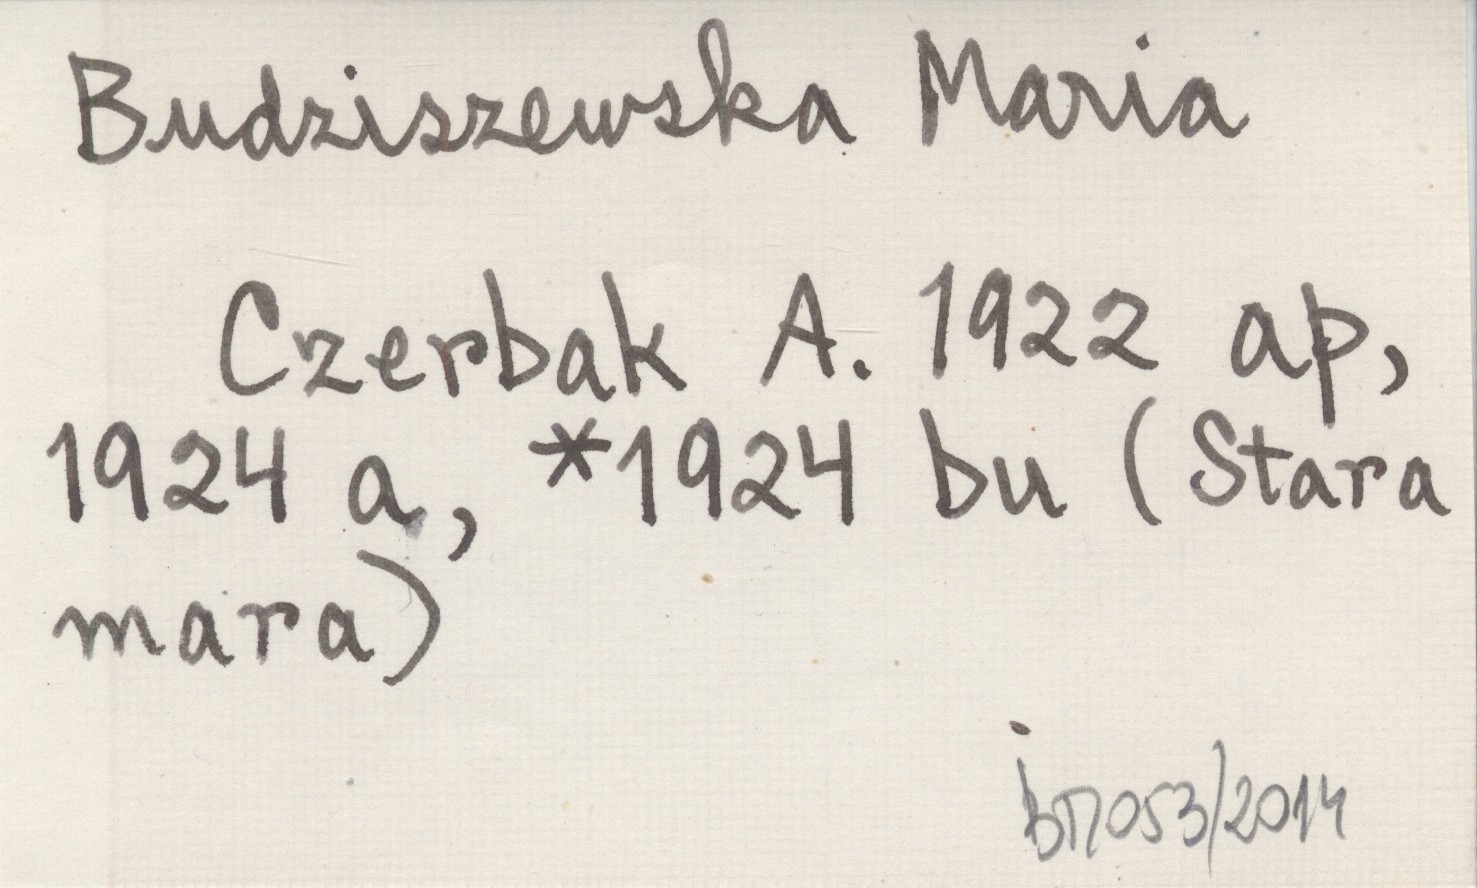 Budziszewska Maria
Czerbak A. 1922 ap,
1924 a, *1924 bu (Stara
mara)
053/2014